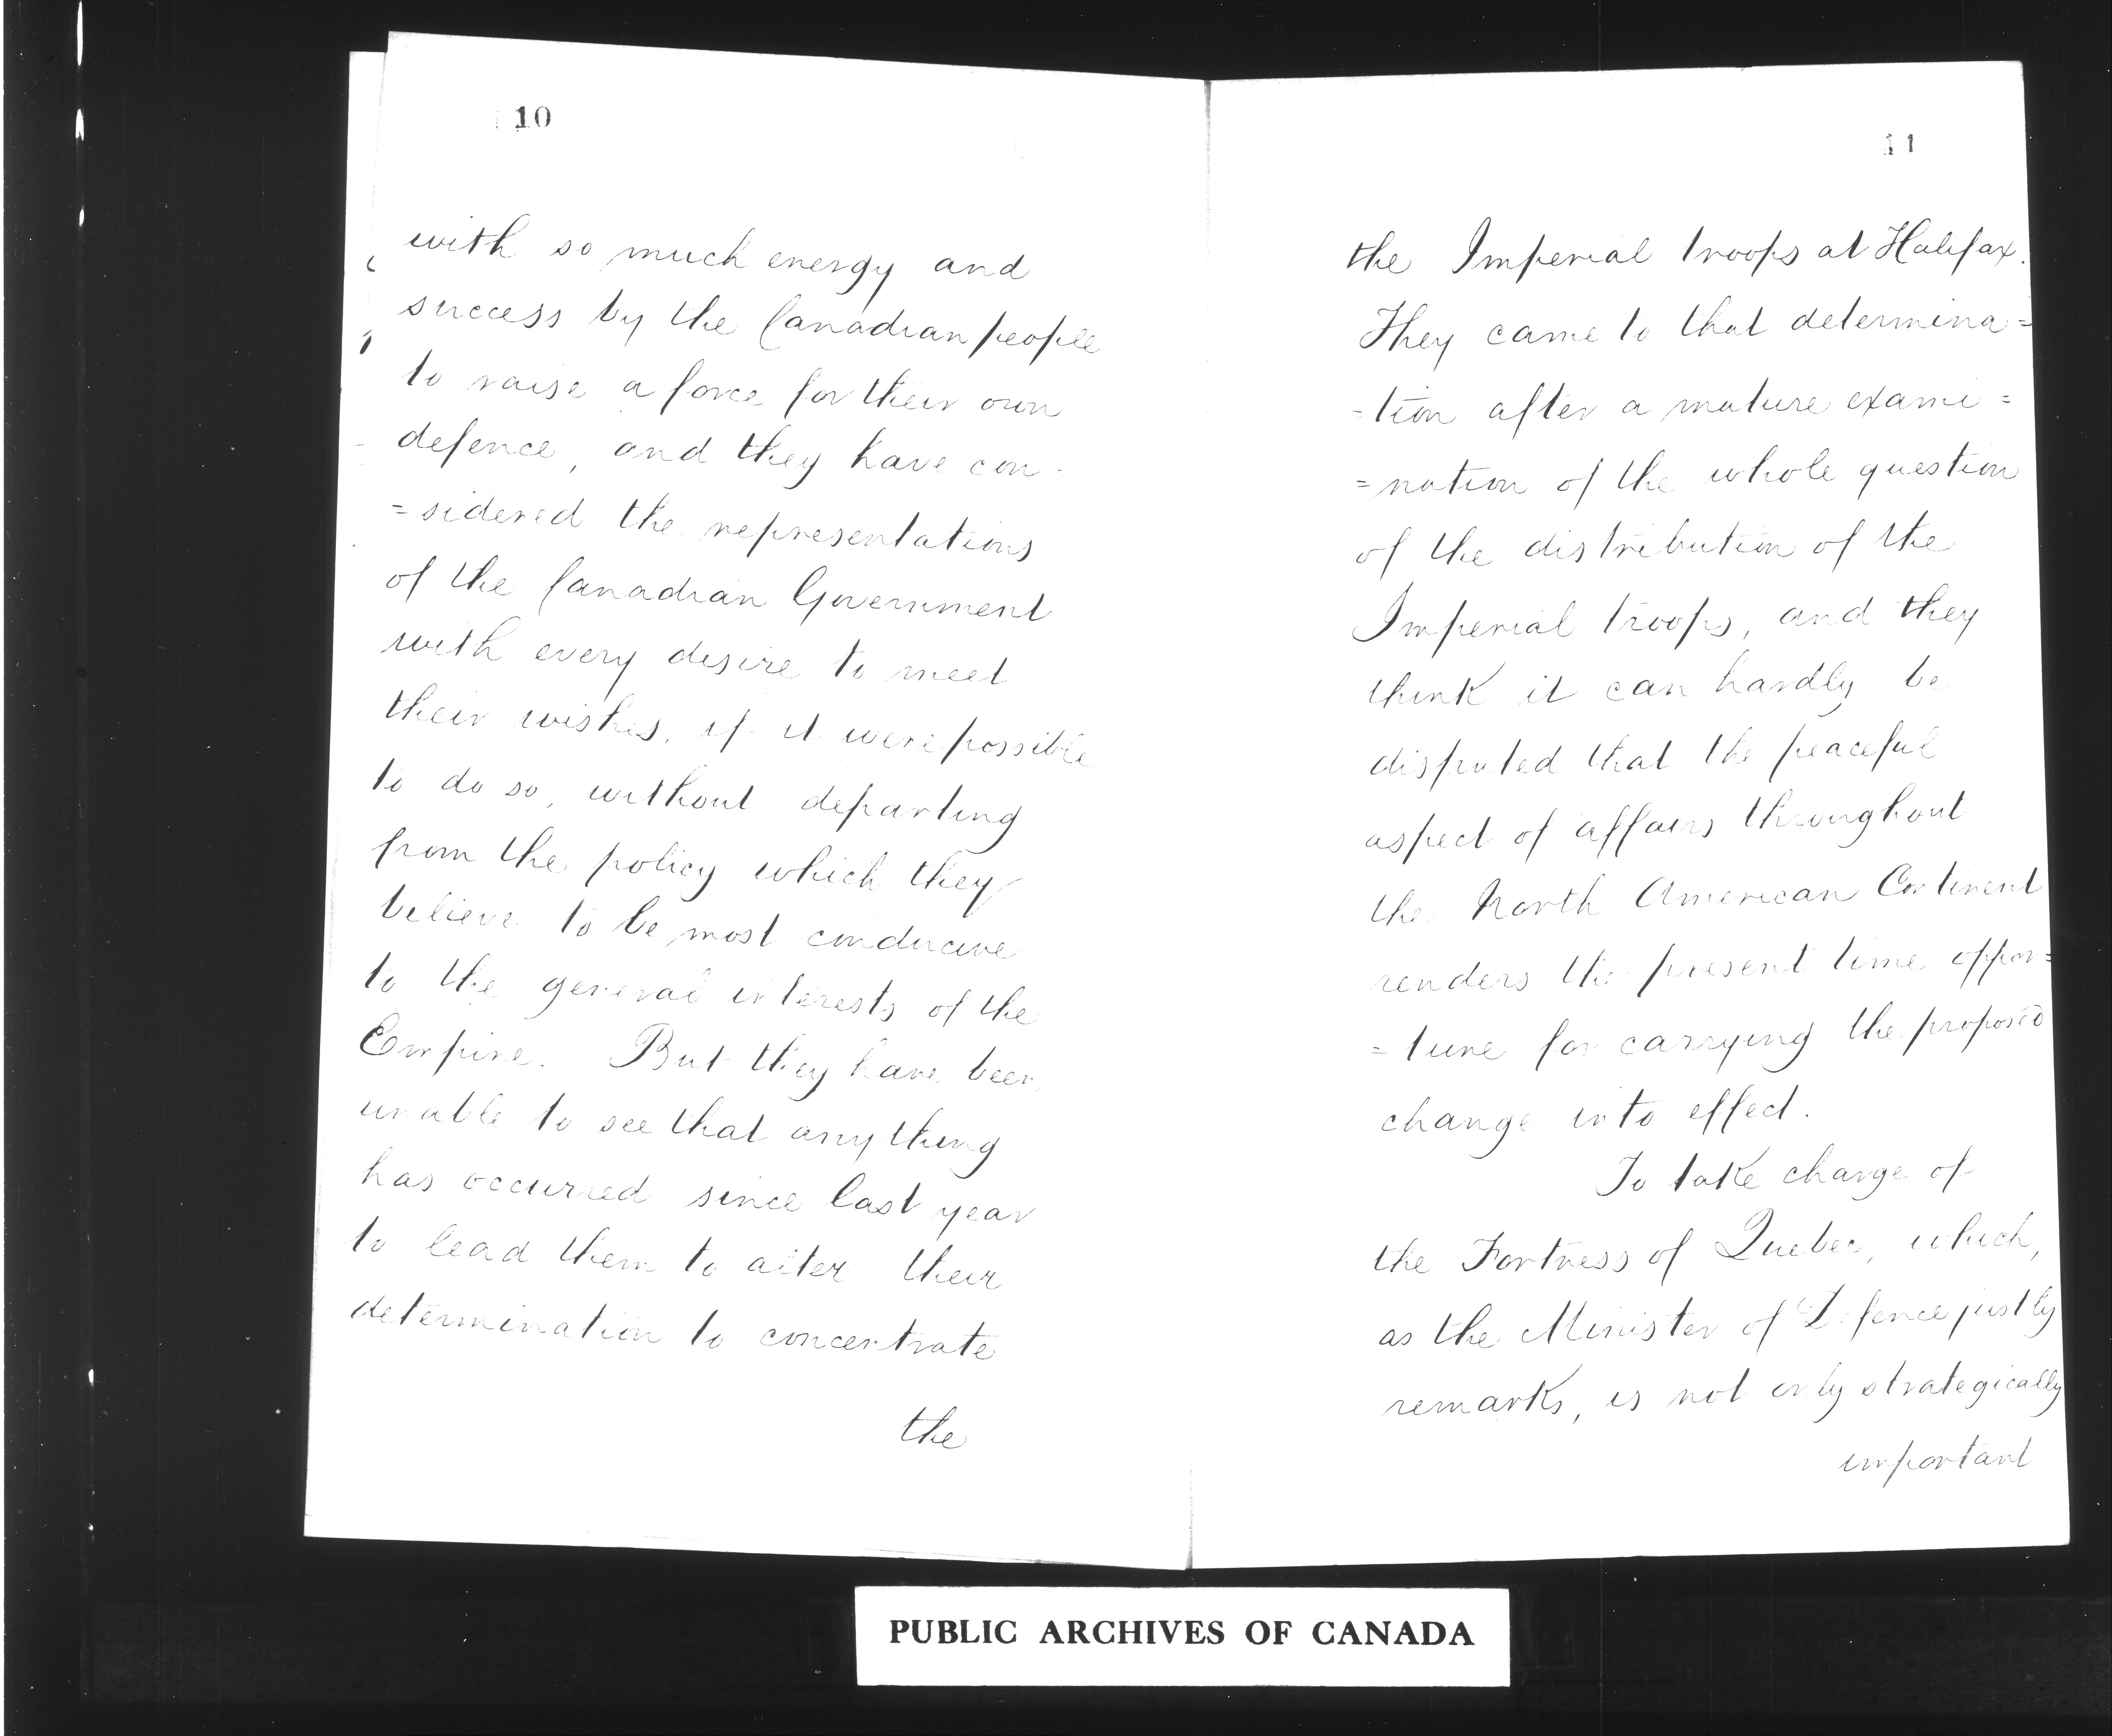 10
with so much energy and
success by the Canadian people
to raise a force for their own
defence, and they have con-
=sidered the representations
of the Canadian Government
with every desire to meet
their wishes, if it were possible
to do so, without departing
from the policy which they
believe to be most conducive
to the general interests of the
Empire. But they have been
unable to see that anything
has occurred since last year
to lead them to alter their
determination to concentrate
the
11
the Imperial troops at Halifax.
They came to that determina=
-tion after a mature exami=
=nation of the whole question
of the distribution of the
Imperial troops, and they
think it can hardly be
disputed that the peaceful
aspect of affairs throughout
the North American Continent
renders the present time oppor=
=tune for carrying the proposed
change into effect.
To take charge of
the Fortress of Quebec, which,
as the Minister of Defence justly
remarks, is not only strategically
important
PUBLIC ARCHIVES OF CANADA